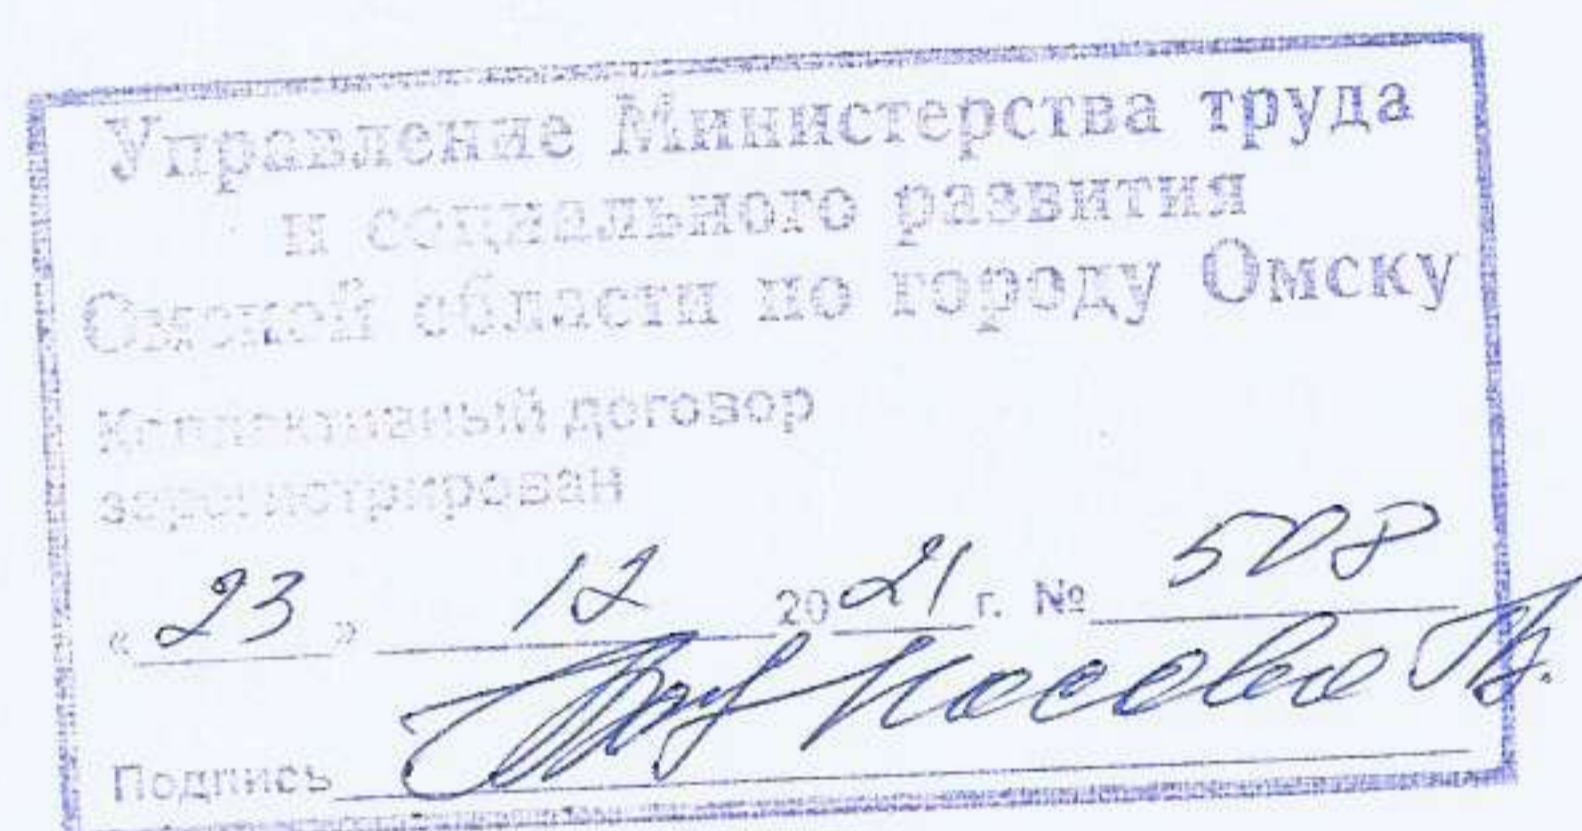 Управление Министерства труда
и социального развития
Омской области по городу Омску
Коллективный договор
зарегистрирован
« 23 » 12 2021 г. № 508
Подпись